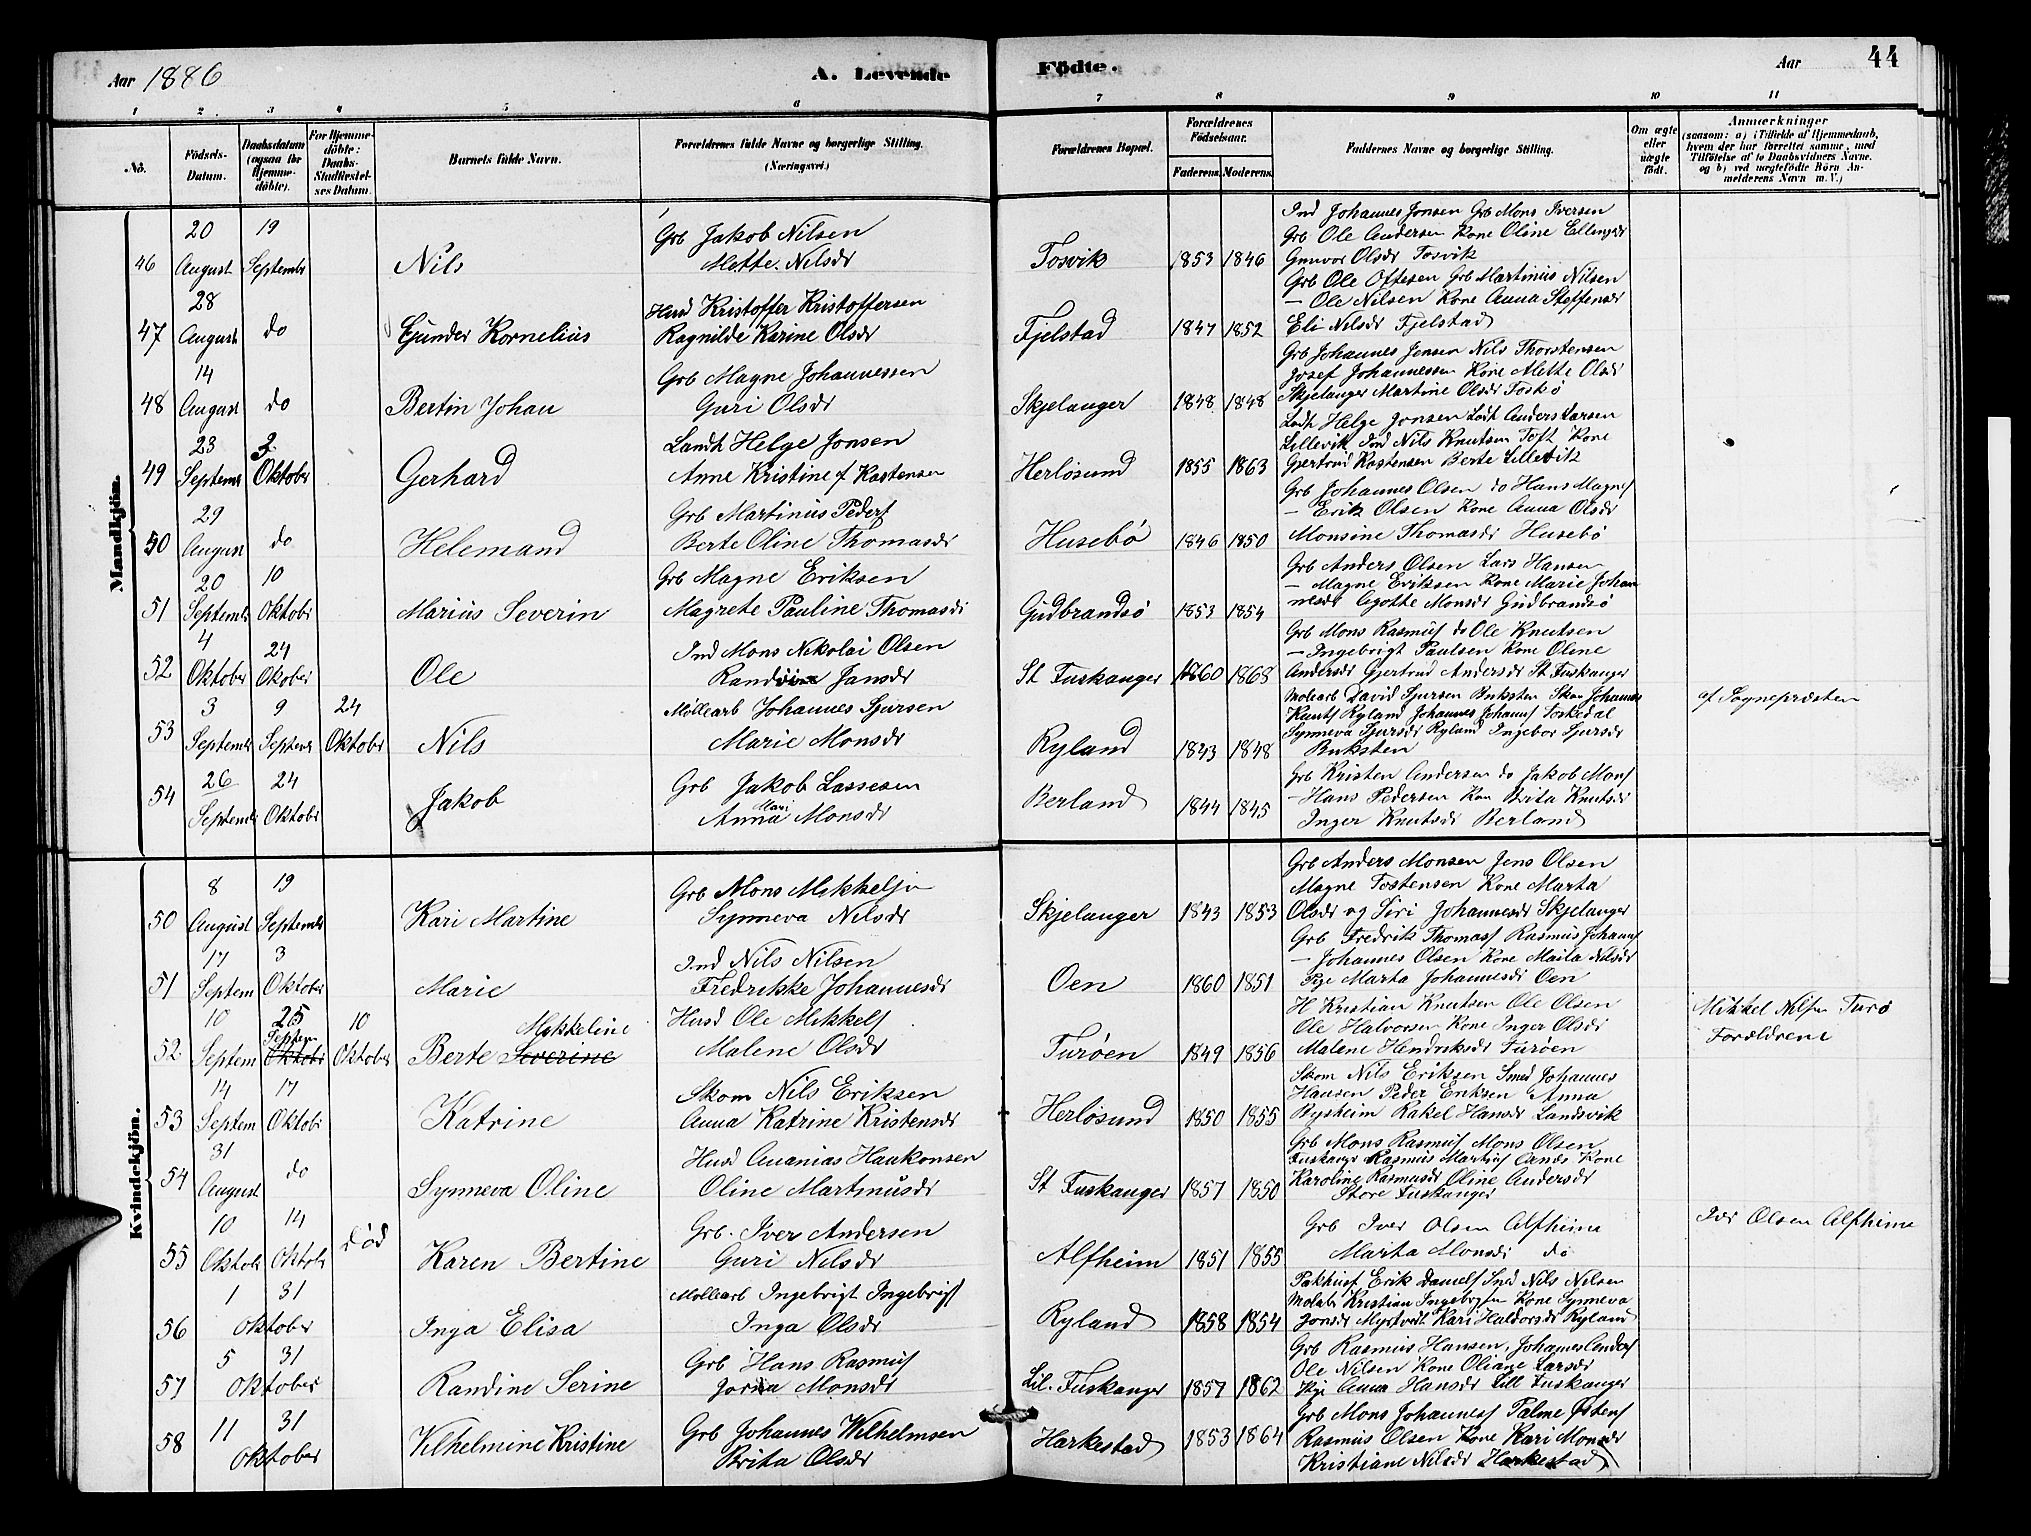 Aar 1886 A. Levende Födte. Aar 44
1 2 3 4 5 6 7 8 9 10 11
No. Födsels-Datum. Daabsdatum (ogsaa for Hjemme-döbte). For Hjemme-döbte: Daabs-Stadfæstel-ses Datum. Barnets fulde Navn. Forældrenes fulde Navne og borgerlige Stilling. (Næringsvei.) Forældrenes Bopæl. Forældrenes Födselsaar. Faderens. Moderens. Faddernes Navne og borgerlige Stilling. Om ægte eller uægte födt. Anmærkninger (saasom: a) i Tilfælde af Hjemmedaab, hvem der har forrettet samme, med Tilföielse af to Daabsvidners Navne. og b) ved uægtefödte Börn An-melderens Navn m. V.)
Mandkjön.
46 20 August 19 Septembr Nils Grb Jakob Nilsen Mette Nilsdr Tosvik 1853 1846 Ind Johannes Jonsen Grb Mons Iversen
Grb Ole Andersen Kone Oline Ellingsdr
Gunvor Olsdr Tosvik
47 28 August do Gunder Kornelius Husd Kristoffer Kristoffersen Ragnilde Karine Olsdr Fjelstad 1847 1852 Grb Ole Oftesen Grb Martinus Nilsen
— Ole Nilsen Kone Anna Steffensdr
Eli Nilsdr Fjelstad
48 14 August do Bertin Johan Grb Magne Johannessen Guri Olsdr Skjelanger 1848 1848 Grb Johannes Jensen Nils Thorstensen
Josef Johannessen Kone Mette Olsdr
Skjelanger Martine Olsdr Toskö
49 23 Septembr 3 Oktober Gerhard Landh Helge Jonsen Anne Kristine f Kastensen Herlösund 1855 1863 Landh Helge Jonsen Lodt Anders Larsen
Lillevik Ind Nils Knutsen Toft Kone
Gjertrud Kastensen Berte Lillevik
50 29 August do Helemand Grb Martinus Peders Berte Oline Thomasdr Husebö 1846 1850 Grb Johannes Olsen do Hans Magnes
— Erik Olsen Kone Anna Olsdr
Monsine Thomasdr Husebö
51 20 Septembr 10 Oktobr Marius Severin Grb Magne Eriksen Magrete Pauline Thomasdr Gudbrandsö 1853 1854 Grb Anders Olsen Lars Hansen
— Magne Eriksen Kone Marie Johan
nesdr Agotte Monsdr Gudbrandsö
52 4 Oktober 24 Okober Ole Ind Mons Nikolai Olsen Randi Jansdr St Fuskanger 1860 1868 Grb Mons Rasmus do Ole Knutsen
— Ingebrigt Paulsen Kone Oline
Andersdr Gjertrud Andersdr St Fuskanger
53 3 Septembr 9 Septembr 24 Oktober Nils Möllearb Johannes Sjursen Marie Monsdr Ryland 1843 1848 Molearb David Sjursen Buksten Skom Johannes
Knuts Ryland Johannes Johans Toskedal
Synneva Sjursdr Ryland Ingebor Sjursdr
Buksten af Sognepræsten
54 26 September 24 Oktober Jakob Grb Jakob Lassesen Anna Mari Monsdr Berland 1844 1845 Grb Kristen Andersen do Jakob Mons
— Hans Pedersen Kon Brita Knutsdr
Inger Knutsdr Berland
Kvindekjön.
50 8 August 19 Septembr Kari Martine Grb Mons Mikkelsen Synneva Nilsdr Skjelanger 1843 1853 Grb Anders Monsen Jens Olsen
Magne Tostensen Kone Marta
Olsdr og Siri Johannesdr Skjelanger
51 17 Septem 3 Oktober Marie Ind Nils Nilsen Fredrikke Johannesdr Oen 1860 1851 Grb Fredrik Thomass Rasmus Johans
— Johannes Olsen Kone Maila Nilsdr
Pige Marta Johannesdr Oen
52 10 Septem 25 Septem Oktobr 10 Oktober Berte Severine Mikkeline Husd Ole Mikkels Malene Olsdr Turöen 1849 1856 H Kristian Knutsen Ole Olsen
Ole Halvorsen Kone Inger Olsdr
Malene Hendriksdr Turöen Mikkel Nilsen Turö
Forældrene
53 14 Septem 17 Oktobr Katrine Skom Nils Eriksen Anna Katrine Kristensdr Herlösund 1850 1855 Skom Nils Eriksen Smed Johannes
Hansen Peder Eriksen Anna
Bysheim Rakel Hansdr Landsvik
54 31 August do Synneva Oline Husd Ananias Haakonsen Oline Martinusdr St Fuskanger 1857 1850 Grb Mons Rasmus Mons Olsen
Fuskanger Rasmus Martins Arnes Kone
Karoline Rasmusdr Oline Andersdr
Store Fuskanger
55 10 Oktobr 14 Oktobr död Karen Bertine Grb. Iver Andersen Guri Nilsdr Alfheim 1851 1855 Grb Iver Olsen Alfheim
Marta Monsdr do Iver Olsen Alfheim
56 1 31 Oktober Inga Elisa Möllearb Ingebrigt Ingebrigs Inga Olsdr Ryland 1858 1854 Pakhusf Erik Daniels Ind Nils Nilsen
Molabr Kristian Ingebrigtsen Kone Synneva
Jonsdr Myrtvedt Kari Haldorsdr Ryland
57 5 31 Oktober Randine Serine Grb Hans Rasmus Jorna Monsdr Lil. Fuskanger 1857 1862 Grb Rasmus Hansen, Johannes Anders
Ole Nilsen Kone Oliane Larsdr
Pige Anna Hansdr Lill Fuskanger
58 11 31 Oktober Vilhelmine Kristine Grb Johannes Wilhelmsen Brita Olsdr Harkestad 1853 1864 Grb Mons Johanness Palme Östens
Rasmus Olsen Kone Kari Monsdr
Kristiane Nilsdr Harkestad